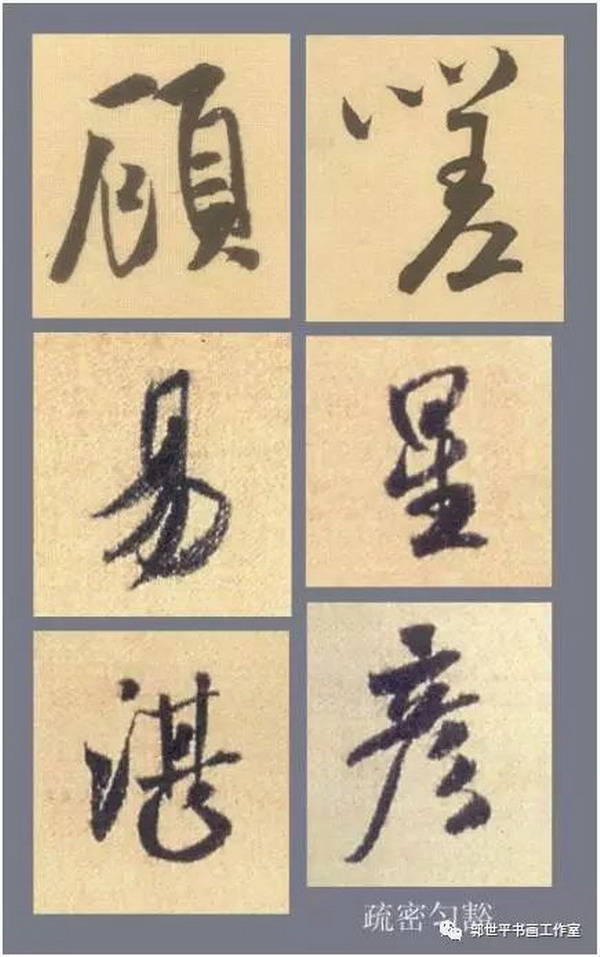 顧 嗟
易 星
湛 彦
疏密匀豁
郭世平书画工作室